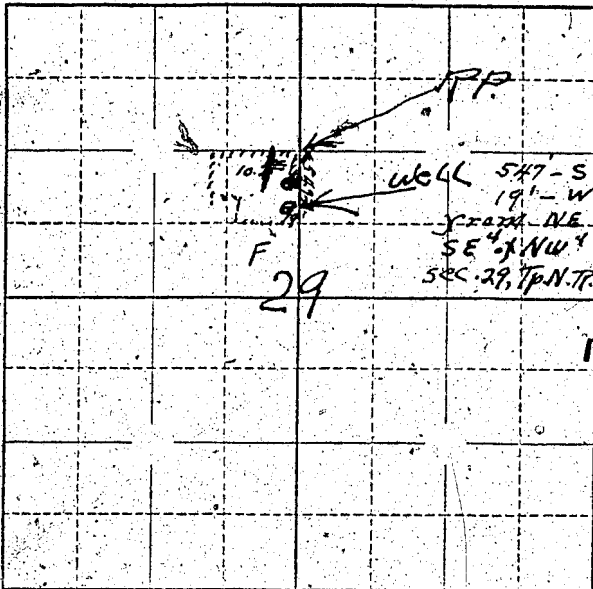 R.P.
Well 547' - S
19' - W
from NE
SE 4 of NW 4
Sec. 29, Tp.N.R.
10.
F
29